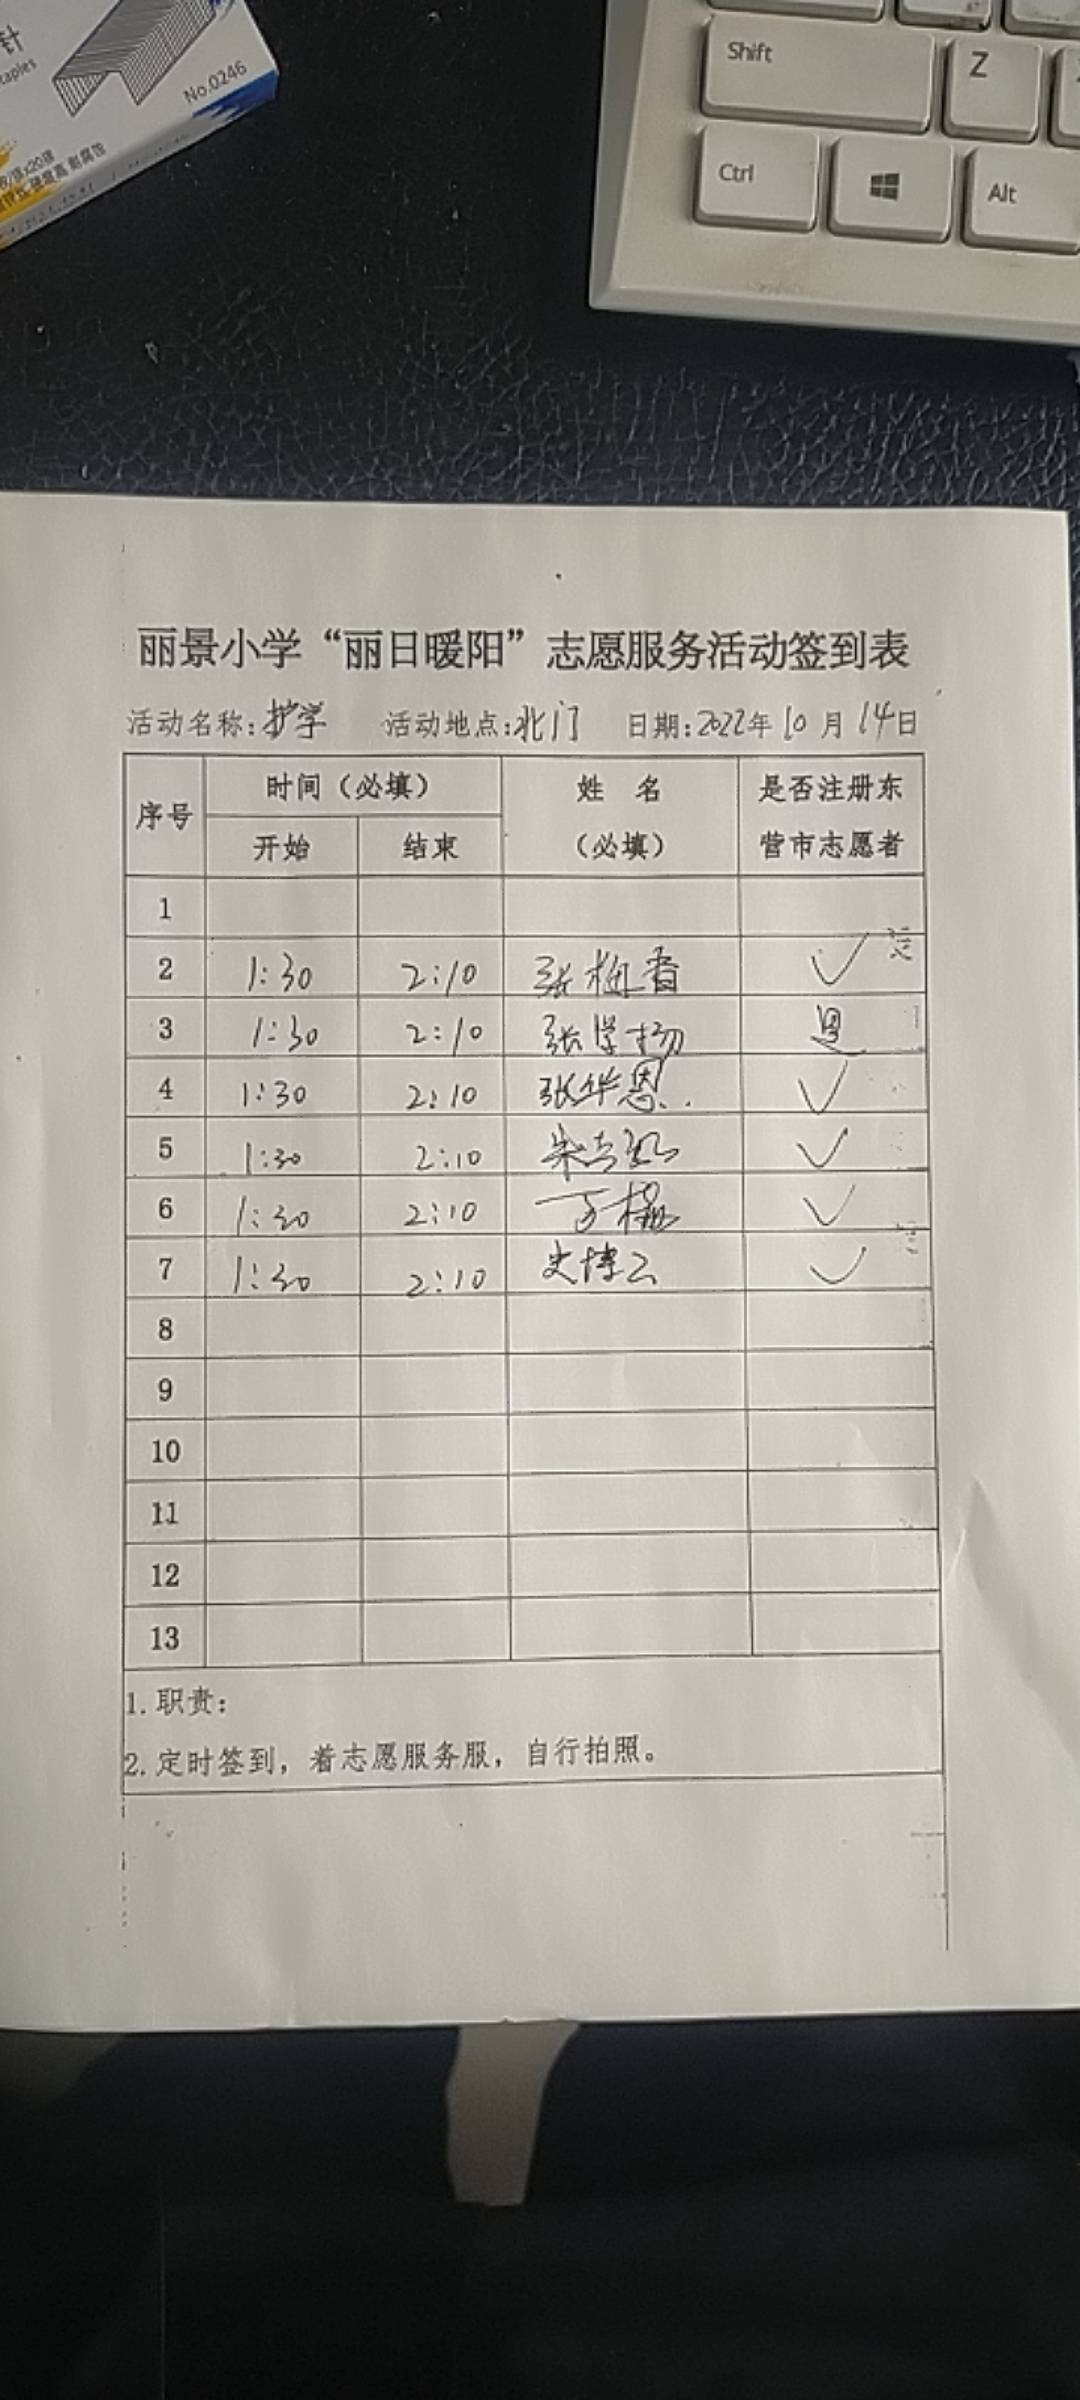 针
taples
No.0246
Shift
Z
Ctrl
Alt
丽景小学“丽日暖阳”志愿服务活动签到表
活动名称:护学 活动地点:北门 日期:2022年10月14日
序号 时间（必填） 姓 名 是否注册东
开始 结束 （必填） 营市志愿者
1
2 1:30 2:10 张梅香 ✓
3 1:30 2:10 张学杨 是
4 1:30 2:10 张华恩 ✓
5 1:30 2:10 ✓
6 1:30 2:10 ✓
7 1:30 2:10 史博云 ✓
8
9
10
11
12
13
1.职责：
2.定时签到，着志愿服务服，自行拍照。